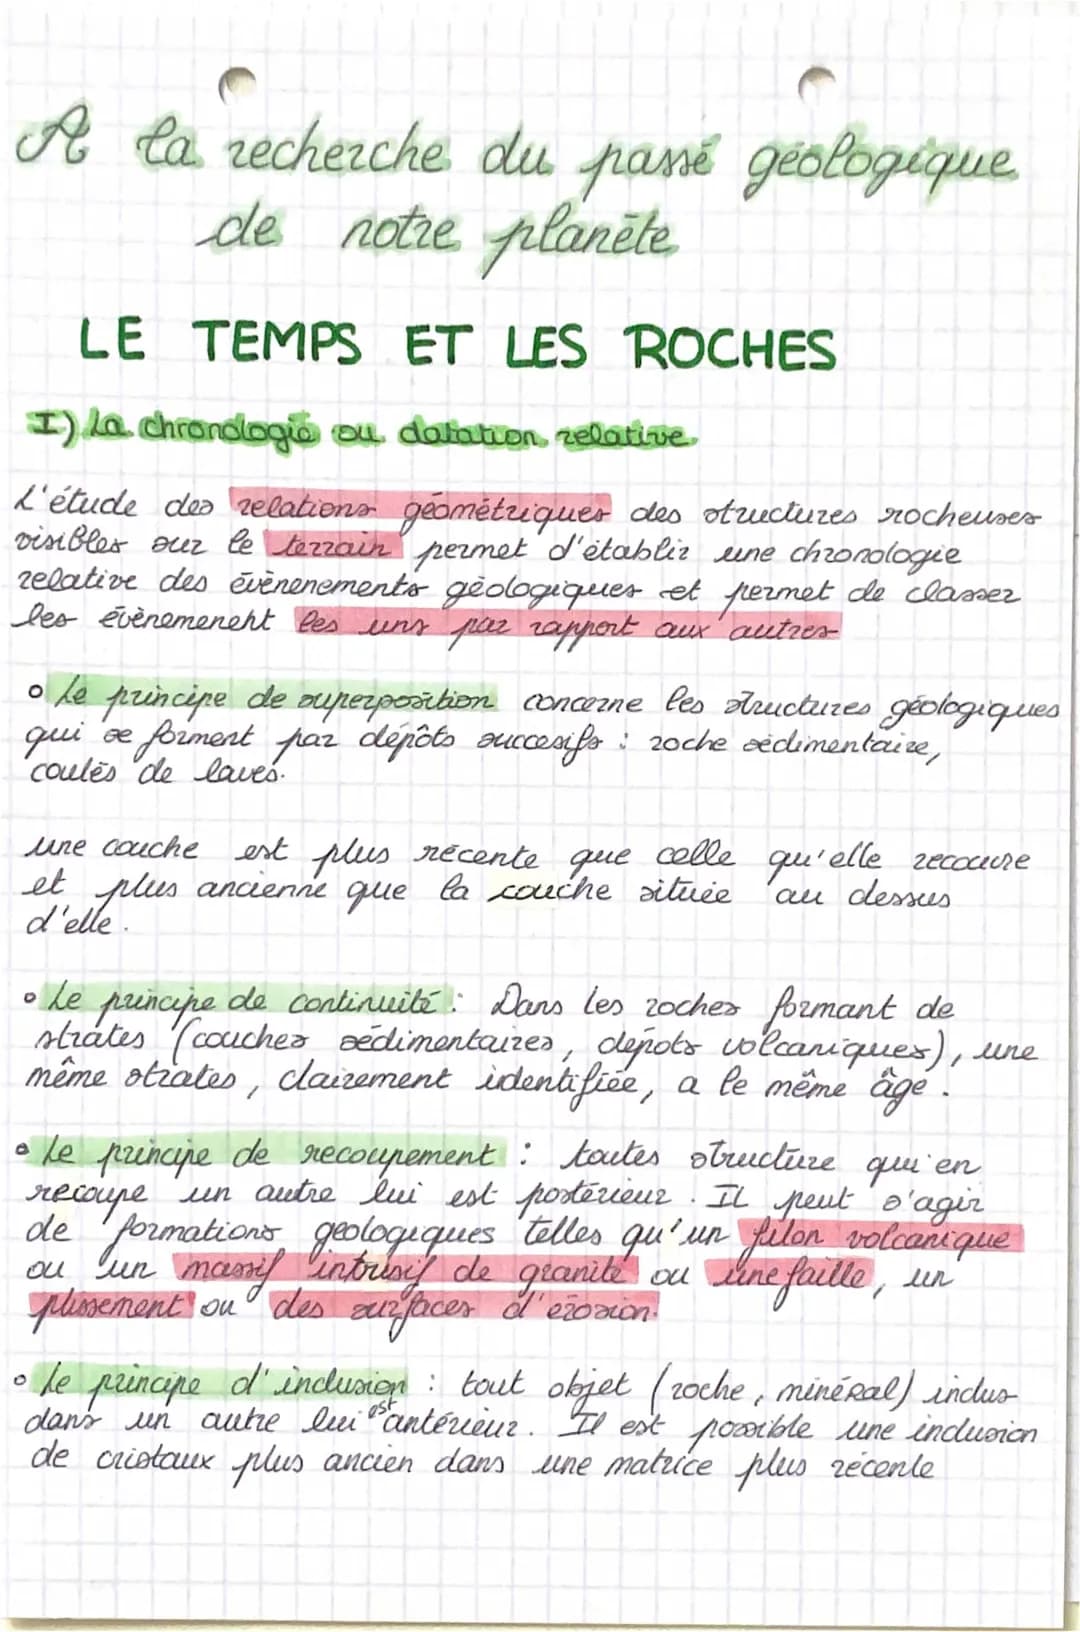 A la recherche du passé géologique
de notre planète
LE TEMPS ET LES ROCHES
I) La chronologie ou datation relative
L'étude des relations géométriques des structures rocheuses
visibles sur le terrain permet d'établir une chronologie
relative des évènenements géologiques et permet de classer
les évènemeneht les uns par rapport aux autres
Le principe de superposition concerne les structures géologiques
qui se forment par dépôts succesifs : roche sédimentaire,
coulés de laves.
une couche est plus récente que celle qu'elle recouvre
et plus ancienne que la couche située au dessus
d'elle.
Le principe de continuité : Dans les roches formant de
strates (couches sédimentaires, dépots volcaniques), une
même strates, clairement identifiée, a le même âge.
Le principe de recoupement : toutes structure qui en
recoupe un autre lui est postérieur. Il peut s'agir
de formations géologiques telles qu'un filon volcanique
ou un massif intrusif de granite ou une faille, un
plissement ou des surfaces d'érosion.
Le principe d'inclusion : tout objet (roche, minéral) inclus
dans un autre lui est antérieur. Il est possible une inclusion
de cristaux plus ancien dans une matrice plus récente